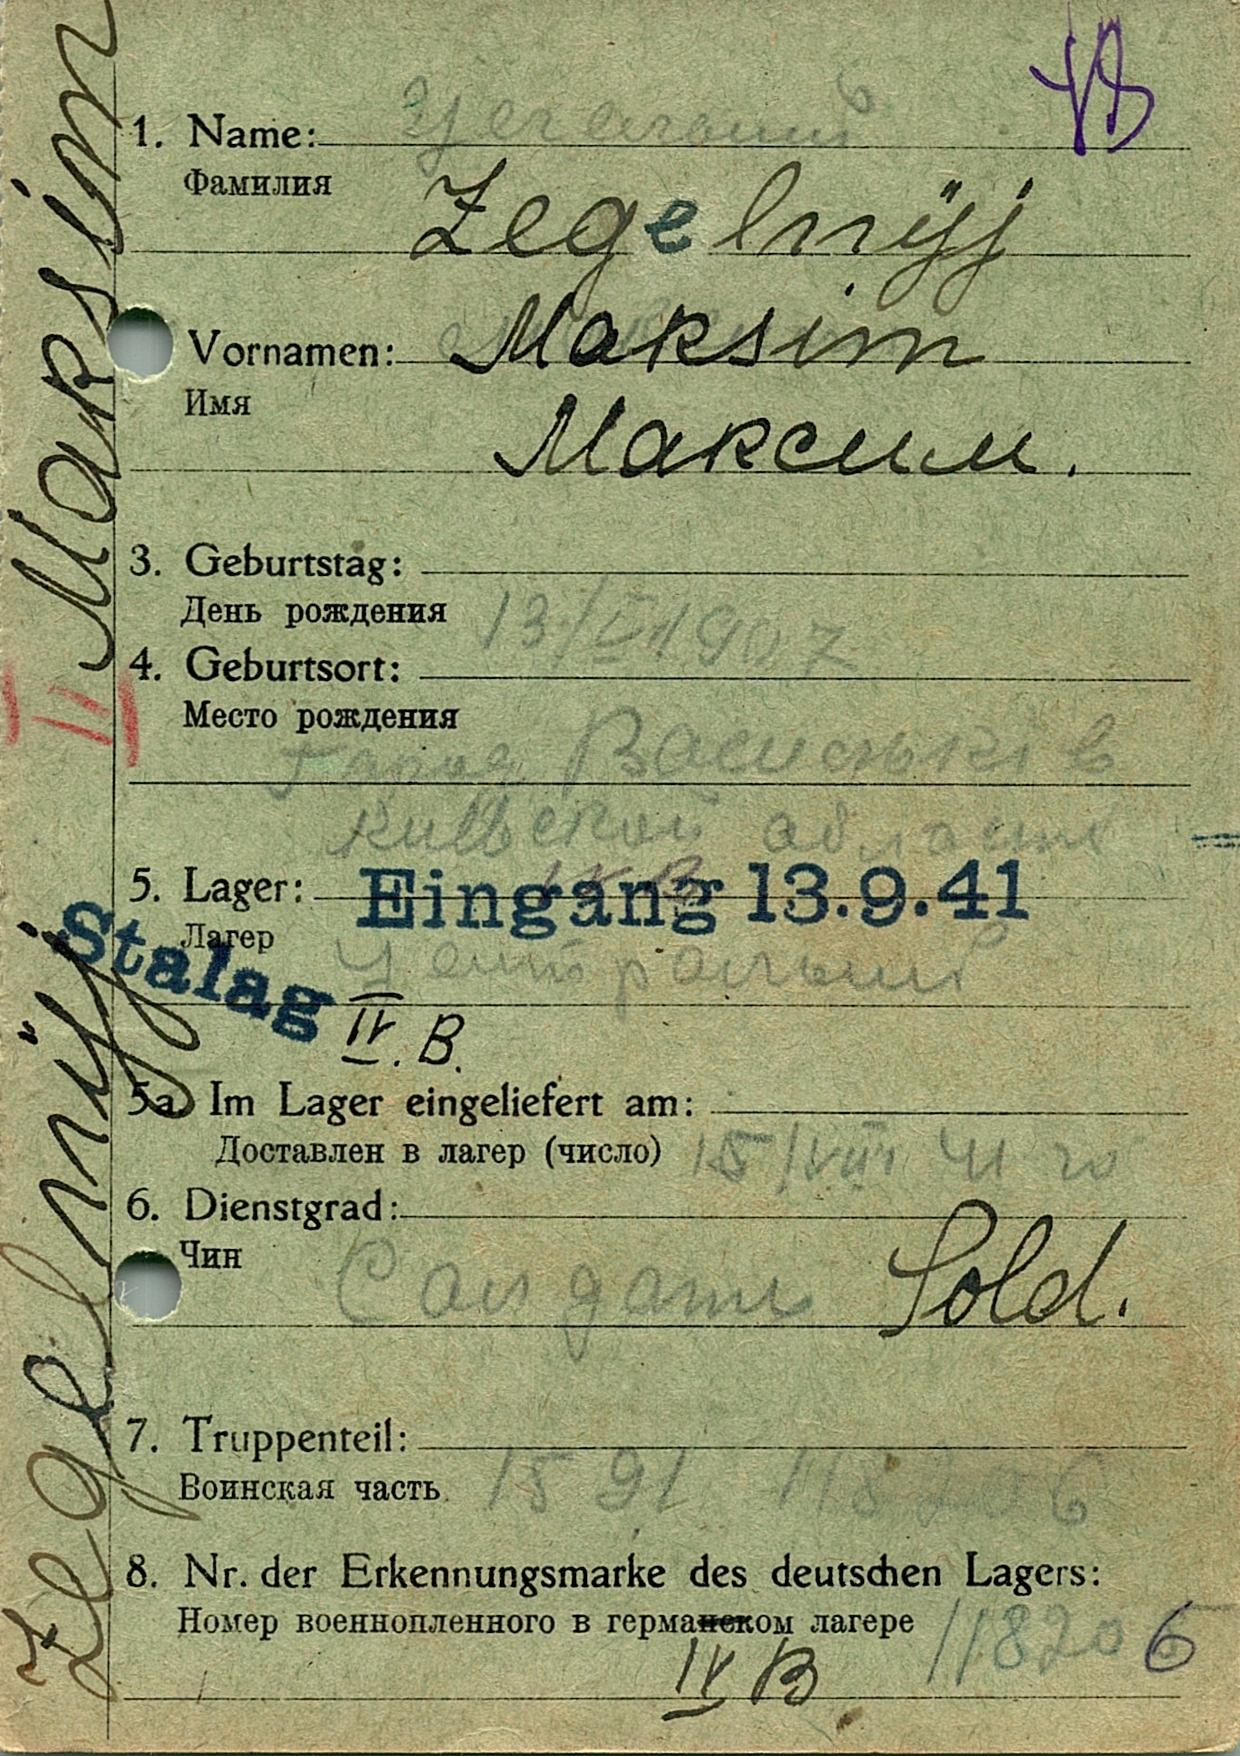 1. Name:
Фамилия
Zegelnÿj
Vornamen: Maksim
Имя
Максим.
3. Geburtstag:
День рождения 13/ 1907
4. Geburtsort:
Место рождения
Город Васильків
київской області
5. Lager: Eingang 13.9.41
Лагер
Stalag IV.B.
5a) Im Lager eingeliefert am:
Доставлен в лагер (число) 15/VIII 41 го
6. Dienstgrad:
Чин Солдат Sold.
7. Truppenteil:
Воинская часть 1591 118206
8. Nr. der Erkennungsmarke des deutschen Lagers:
Номер военнопленного в германском лагере 118206
IV B
Zegelnÿj Maksim